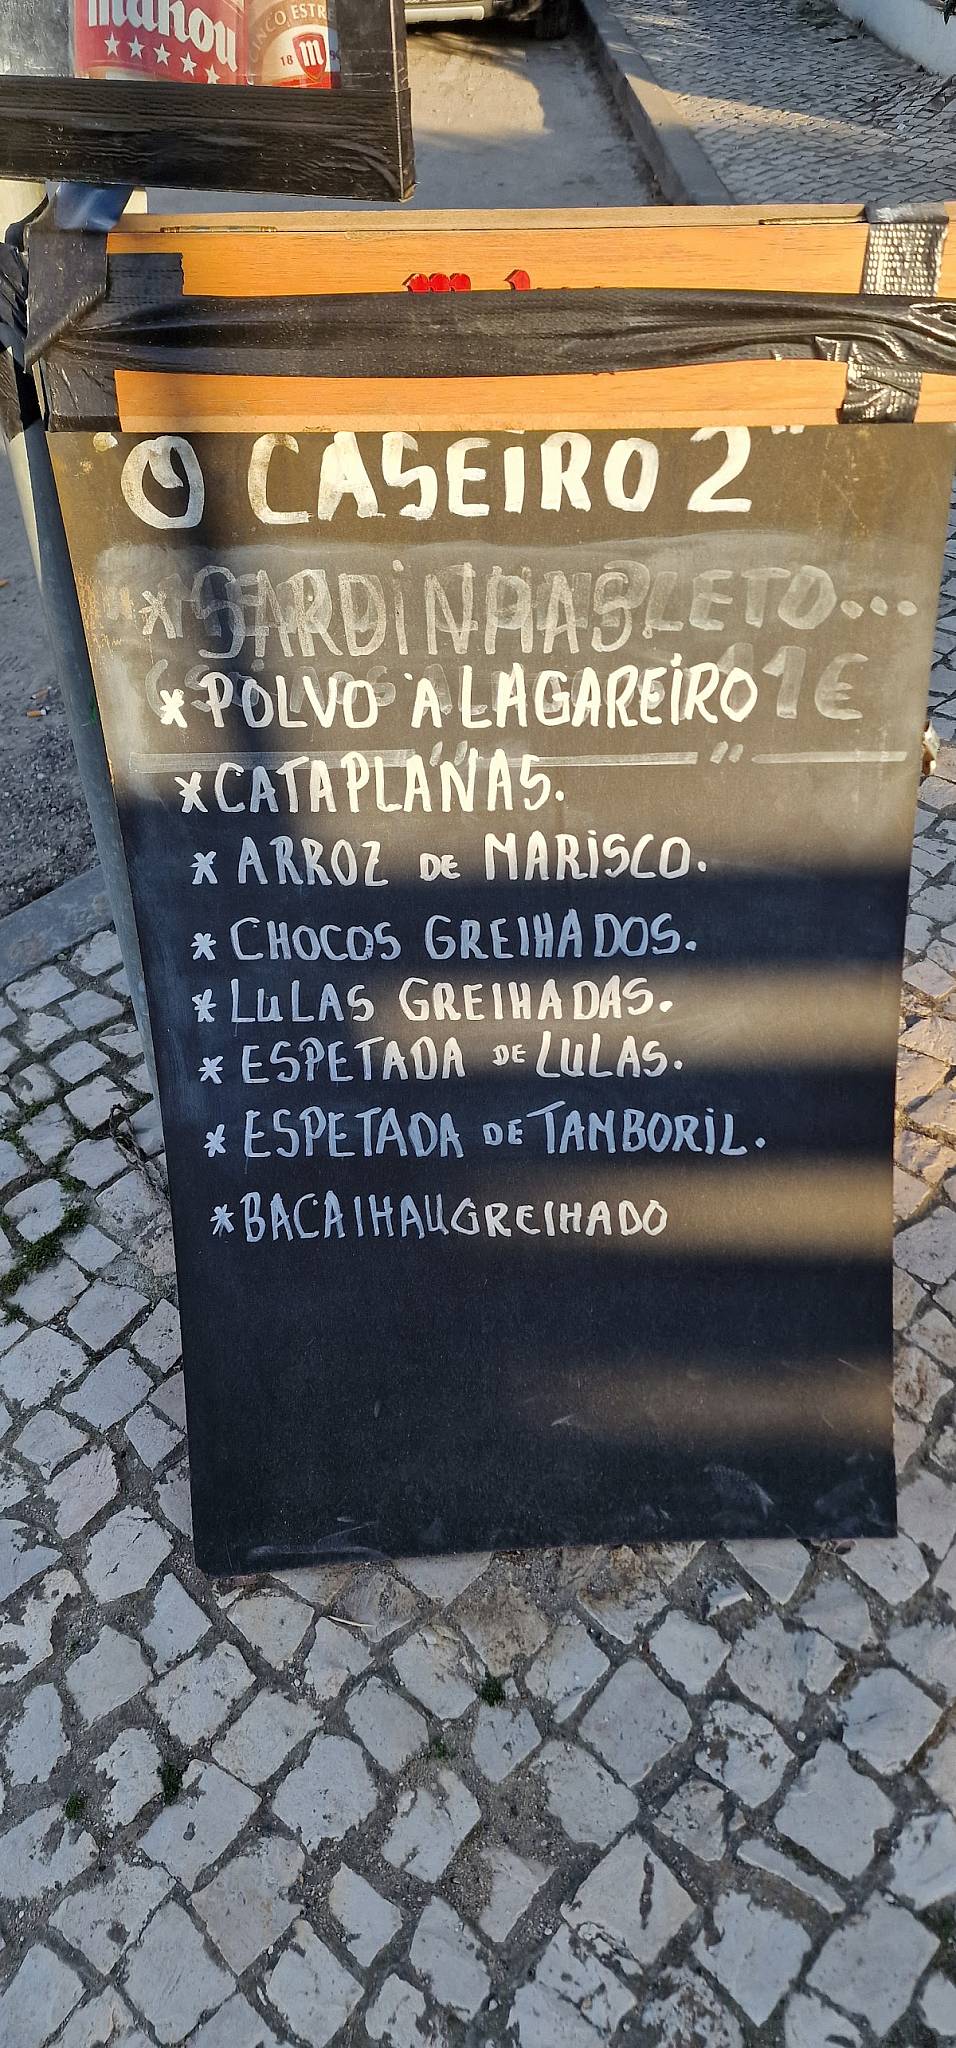 mahou
CINCO ESTRE
18 m
"O CASEiRO 2"
* SARDiNHAS.
LETO...
* POLVO À LAGAREiRO
11€
* CATAPLANAS.
* ARROZ DE MARiSCO.
* CHOCOS GRElHADOS.
* LuLAS GRElHADAS.
* ESPETADA DE LULAS.
* ESPETADA DE TAMBORiL.
* BACAlHAU GRElHADO